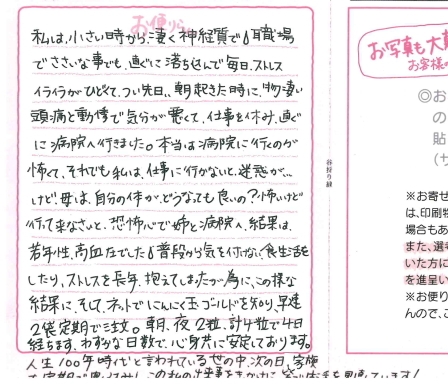 お便り
私は、小さい時から、凄く神経質で、職場
でささいな事でも、直ぐに落ち込んで毎日、ストレス
イライラがひどくて、つい先日、朝起きた時に、物凄い
頭痛と動悸で気分が悪くて、仕事を休み、直ぐ
に病院へ行きました。本当は病院に行くのが
怖くて、それでも私は、仕事に行かないと、迷惑が…
けど、母は、自分の体が、どうなっても良いの?怖いけど
行って来なさいと、恐怖心で姉と病院へ、結果は、
若年性、高血圧でした。普段から気を付けない食生活を
したり、ストレスを長年、抱えてしまったが為に、この様な
結果に、そして、ネットでにんにく玉ゴールドを知り、早速
2袋定期で注文。朝、夜2粒、計4粒で4日
経ちます。わずかな日数で、心身共に安定しております。
人生100年時代と言われている世の中、次の日、家族
谷折り線
お写真も大募
お客様
◎お
の
貼
※お寄せ
は、印刷物
場合もあ
また、選考
いた方に
を進呈い
※お便り
んので、こ